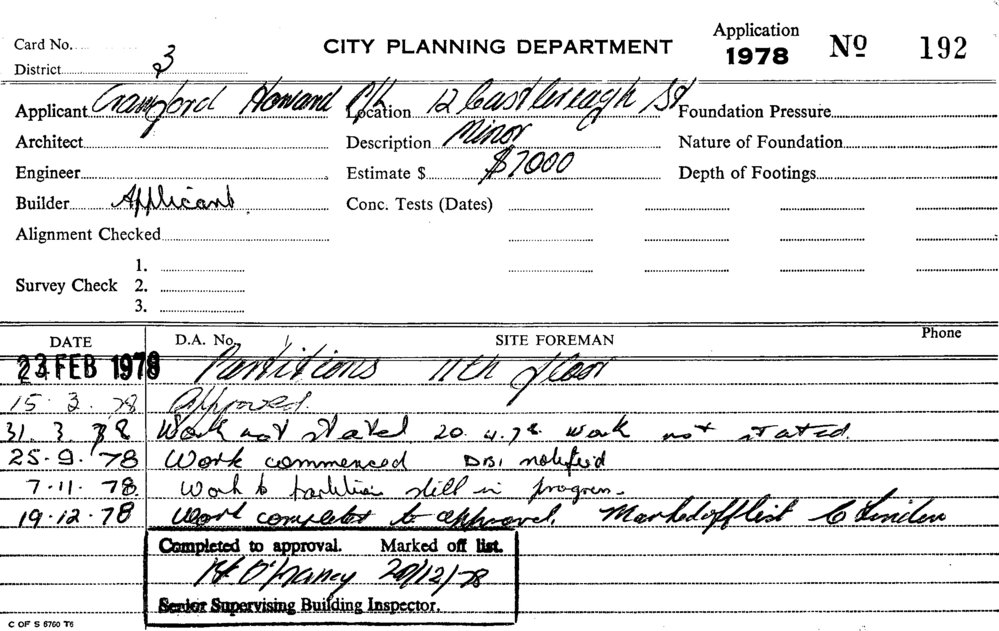 Card No. CITY PLANNING DEPARTMENT Application 1978 No 192
District 3
Applicant Crawford Howard P/L Location 12 Castlereagh St Foundation Pressure
Architect Description Minor Nature of Foundation
Engineer Estimate $ $7000 Depth of Footings
Builder Applicant Conc. Tests (Dates)
Alignment Checked
1.
Survey Check 2.
3.
DATE D.A. No. SITE FOREMAN Phone
23 FEB 1978 Partitions 11th floor
15.3.78 Approved.
31.3.78 Work not stated 20.4.78 work not stated.
25.9.78 Work commenced DBI notified
7.11.78. Work to partition still in progress.
19.12.78 Work completed to approval. Marked off list C Linden
Completed to approval. Marked off list.
20/12/78
Senior Supervising Building Inspector.
C OF S 6760 T6